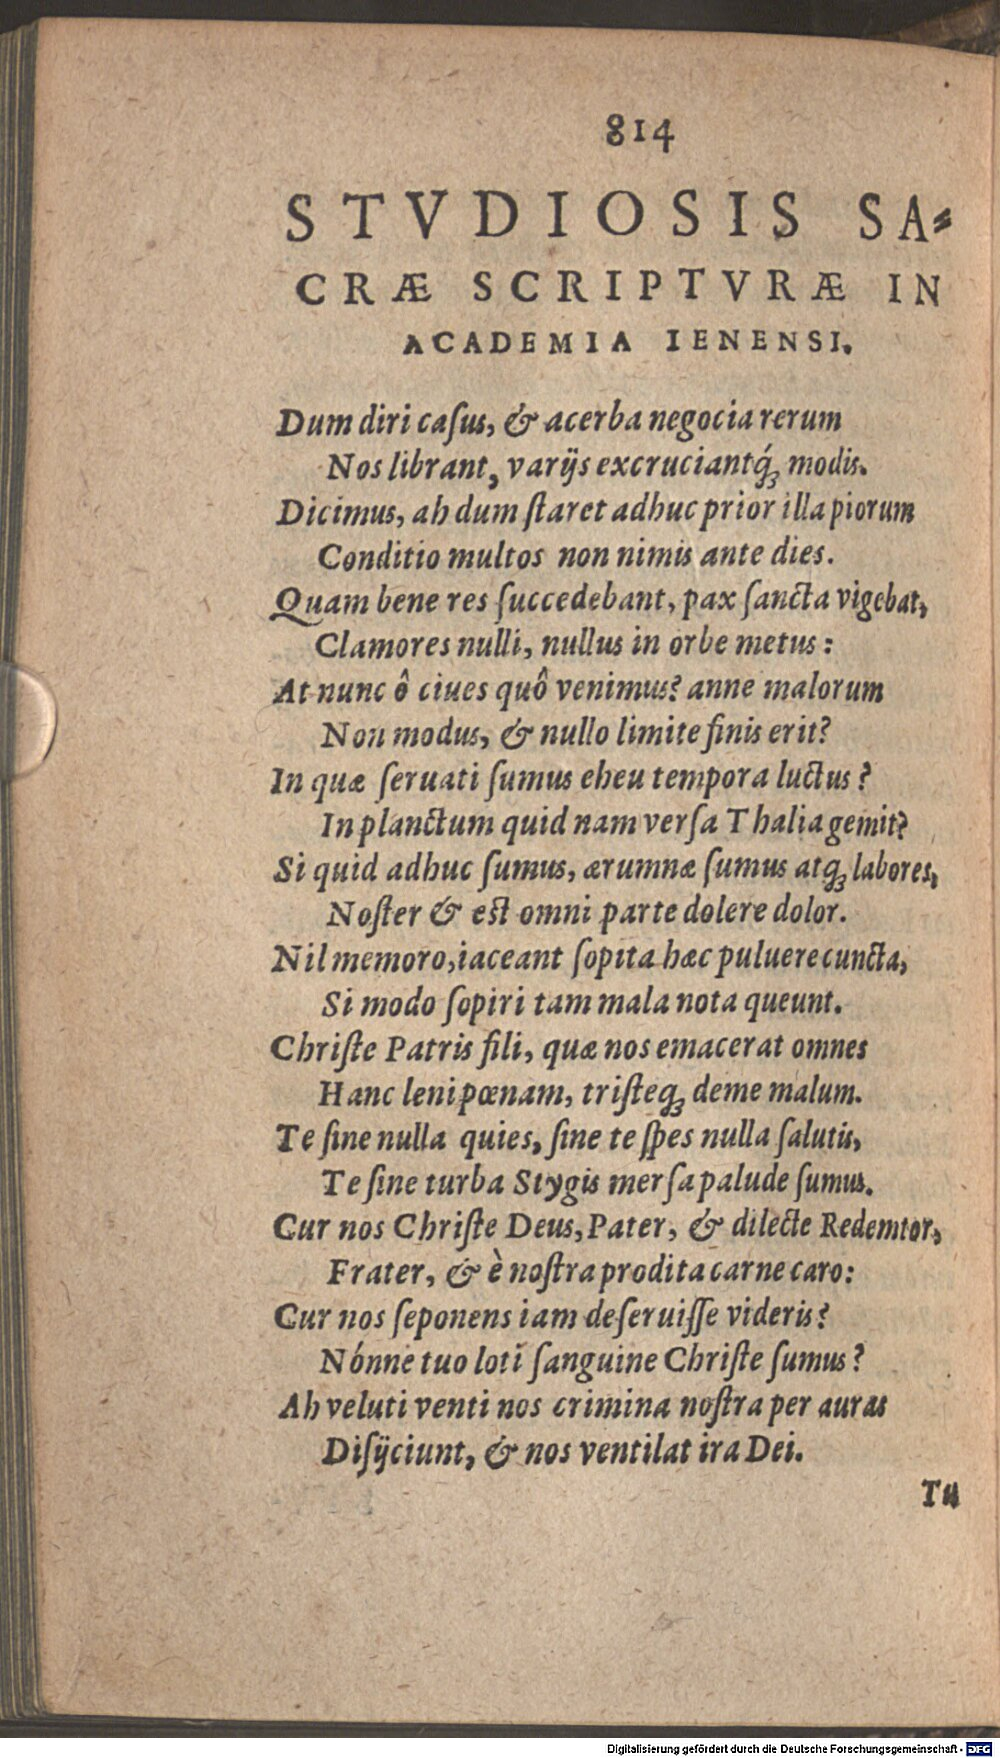 814
STVDIOSIS SA⸗
CRÆ SCRIPTVRÆ IN
ACADEMIA IENENSI.
Dum diri caſus, & acerba negocia rerum
Nos librant, varijs excruciantq́ꝫ modis.
Dicimus, ah dum ſtaret adhuc prior illa piorum
Conditio multos non nimis ante dies.
Quam bene res ſuccedebant, pax ſancta vigebat,
Clamores nulli, nullus in orbe metus:
At nunc ô ciues quô venimus? anne malorum
Non modus, & nullo limite finis erit?
In quæ ſeruati ſumus eheu tempora luctus?
In planctum quid nam verſa Thalia gemit?
Si quid adhuc ſumus, ærumnæ ſumus atqꝫ labores,
Noſter & est omni parte dolere dolor.
Nil memoro, iaceant ſopita hæc puluere cuncta,
Si modo ſopiri tam mala nota queunt.
Chriſte Patris fili, quæ nos emacerat omnes
Hanc leni pœnam, triſteqꝫ deme malum.
Te ſine nulla quies, ſine te ſpes nulla ſalutis,
Te ſine turba Stygis merſa palude ſumus.
Cur nos Chriſte Deus, Pater, & dilecte Redemtor,
Frater, & è noſtra prodita carne caro:
Cur nos ſeponens iam deſeruiſſe videris?
Nónne tuo loti ſanguine Chriſte ſumus?
Ah veluti venti nos crimina noſtra per auras
Diſijciunt, & nos ventilat ira Dei.
Tu
Digitalisierung gefördert durch die Deutsche Forschungsgemeinschaft - DFG